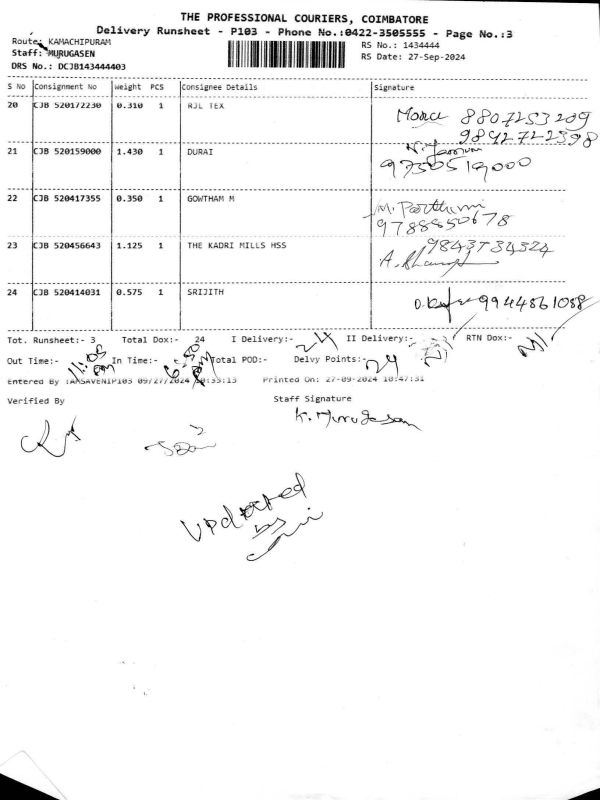 THE PROFESSIONAL COURIERS, COIMBATORE
Delivery Runsheet - P103 - Phone No.:0422-3505555 - Page No.:3
Route: KAMACHIPURAM
RS No.: 1434444
Staff: MURUGASEN
RS Date: 27-Sep-2024
DRS No.: DCJB143444403
S No Consignment No Weight PCS Consignee Details Signature
20 CJB 520172230 0.310 1 RJL TEX 8807253209
9892722398
21 CJB 520159000 1.430 1 DURAI
9750519000
22 CJB 520417355 0.350 1 GOWTHAM M M. Parthuni
9788850678
23 CJB 520456643 1.125 1 THE KADRI MILLS HSS 9843734324
24 CJB 520414031 0.575 1 SRIJITH 9944861088
Tot. Runsheet:- 3 Total Dox:- 24 I Delivery:- 24 II Delivery:- RTN Dox:-
Out Time:- 11:05 am In Time:- 6:50 pm Total POD:- Delvy Points:- 24
Entered By : 09/27/2024 Printed On: 27-09-2024 10:47:31
Verified By
Staff Signature
K. Murugasan
Updated
by